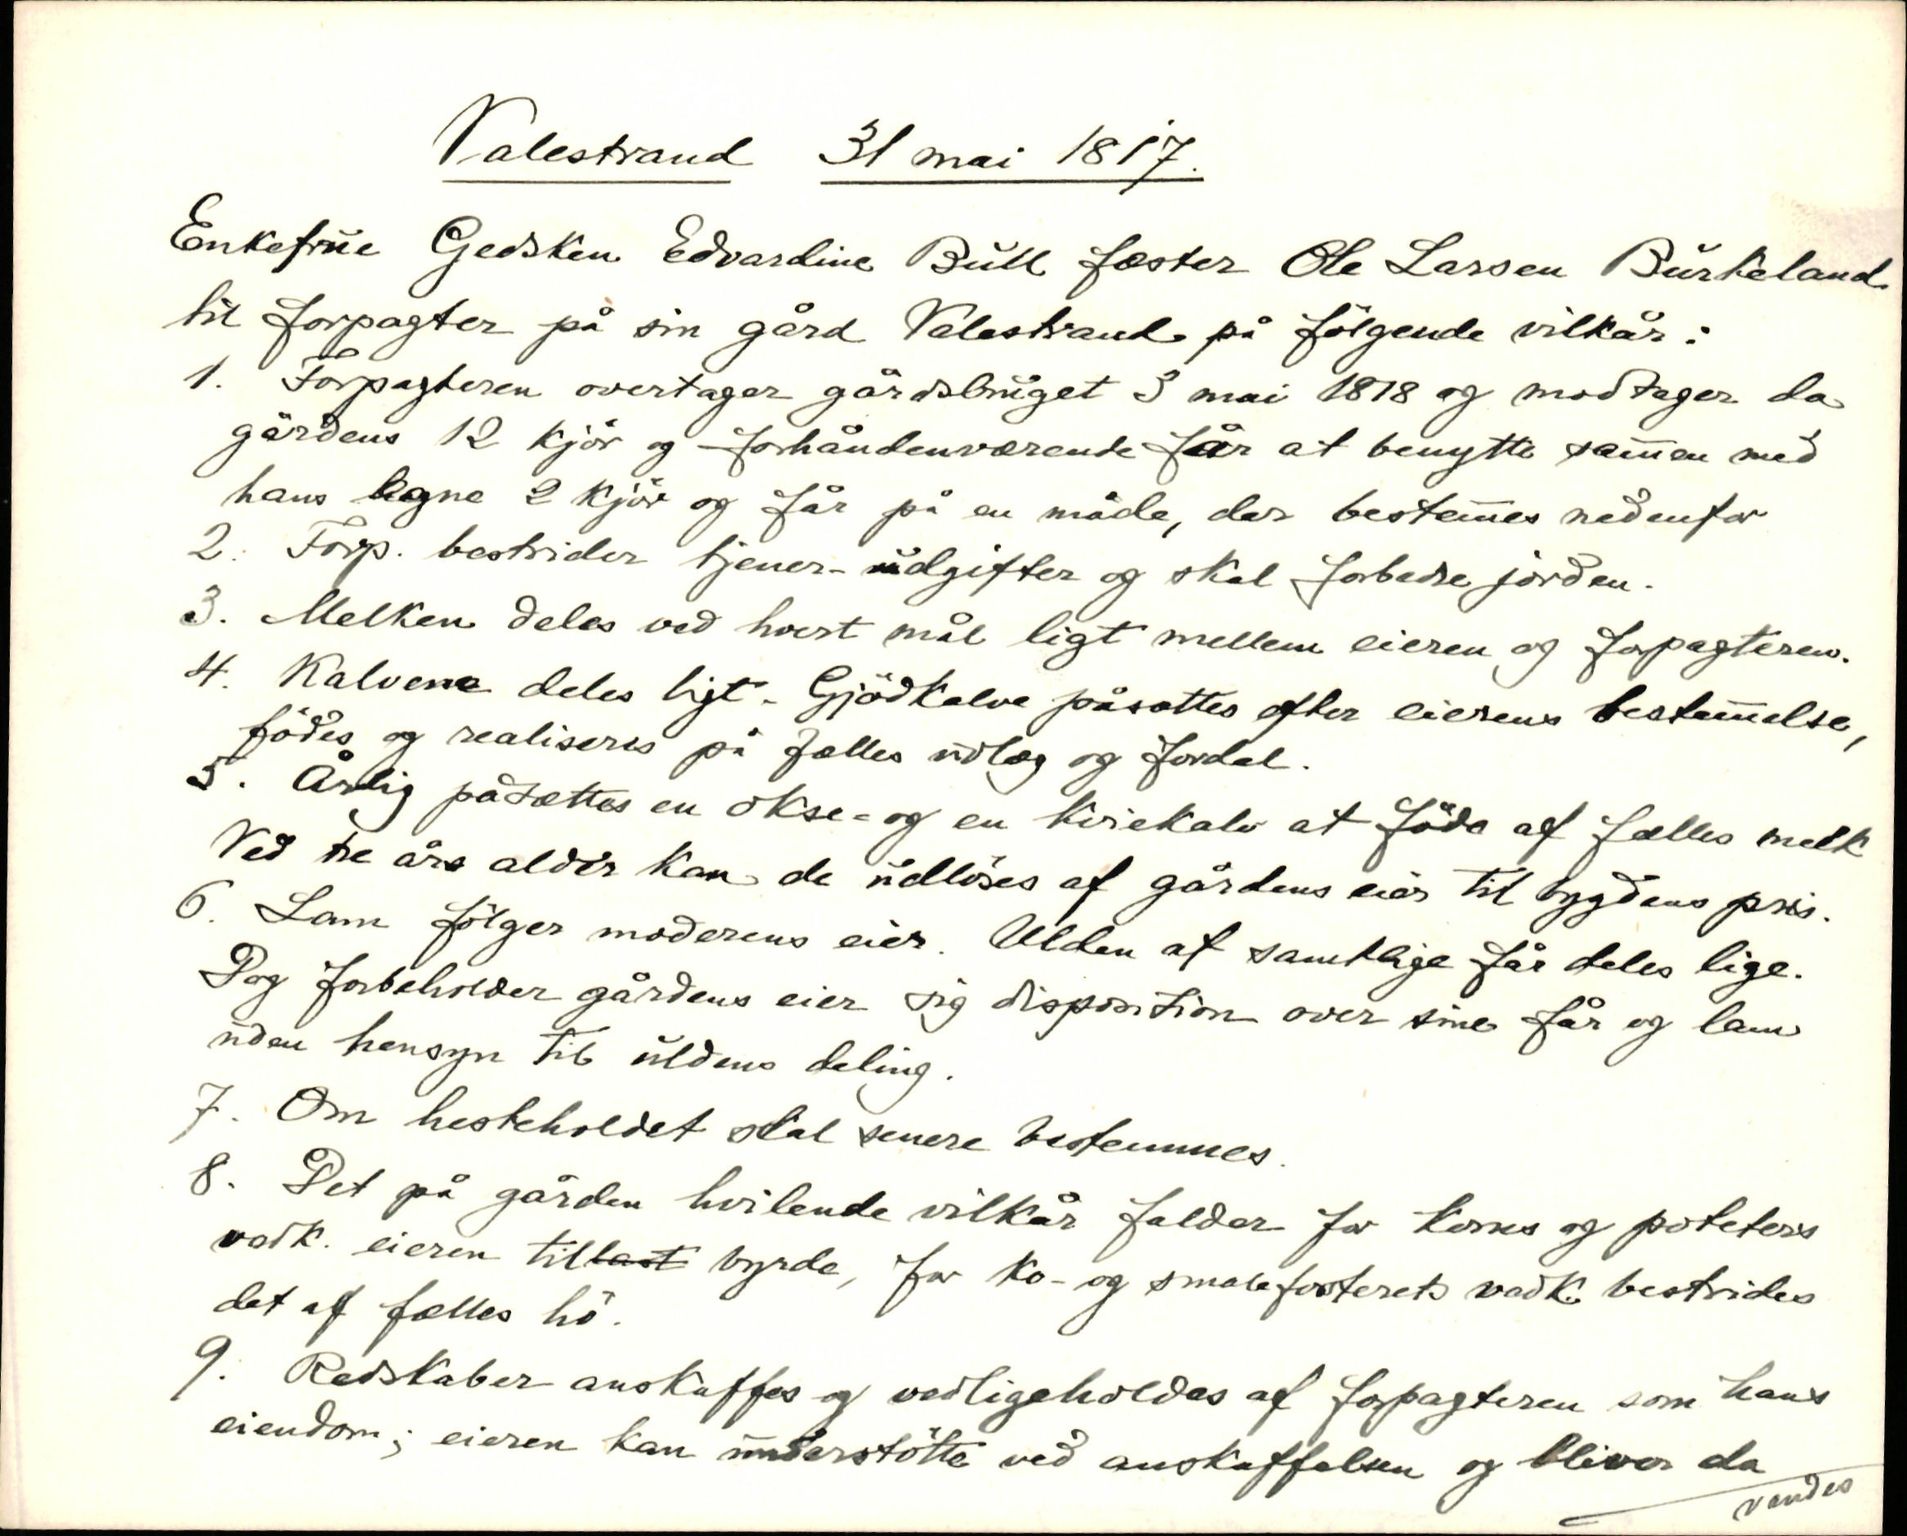 Valestrand 31 mai 1817.
Enkefrue Gedsken Edvardine Bull fæster Ole Larsen Burkeland
til forpagter på sin gård Valestrand på fölgende vilkår:
1. Forpagteren overtager gårdsbruget 3 mai 1818 og modtager da
gårdens 12 kjör og forhåndenværende får at benytte sam̅en med
hans egne 2 kjör og får på en måde, der bestem̅es nedenfor
2. Forp. bestrider tjener-udgifter og skal forbedre jorden.
3. Melken deles ved hvert mål ligt mellem eieren og forpagteren.
4. Kalvene deles ligt. Gjödkalve påsættes efter eierens bestem̅else,
födes og realiseres på fælles udlæg og fordel.
5. Årlig påsættes en okse- og en kviekalv at föde af fælles melk
Ved tre års alder kan de udlöses af gårdens eier til bygdens pris.
6. Lam fölger moderens eier. Ulden af samtlige får deles lige.
Dog forbeholder gårdens eier sig disposition over sine får og lam
uden hensyn til uldens deling.
7. Om hesteholdet skal senere bestemmes.
8. Det på gården hvilende vilkår falder for korns og poteters
vedk. eieren til last byrde, for ko- og smalefosterets vedk. bestrides
det af fælles hö.
9. Redskaber anskaffes og vedligeholdes af forpagteren som hans
eiendom; eieren kan understötte ved anskaffelsen og bliver da
vendes